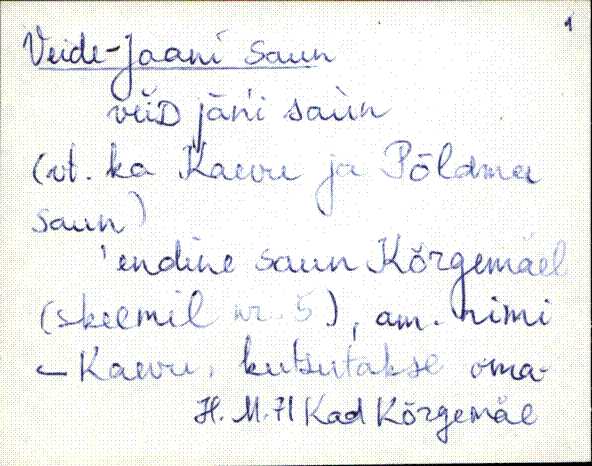 1
Veide-Jaani saun
veiD jāńi saùn
(vt. ka Kaevu ja Põldma
saun)
'endine saun Kõrgemäel
(skeemil nr. 5), am. nimi
– Kaevu, kutsutakse oma-
H. M. 71 Kad Kõrgemäe